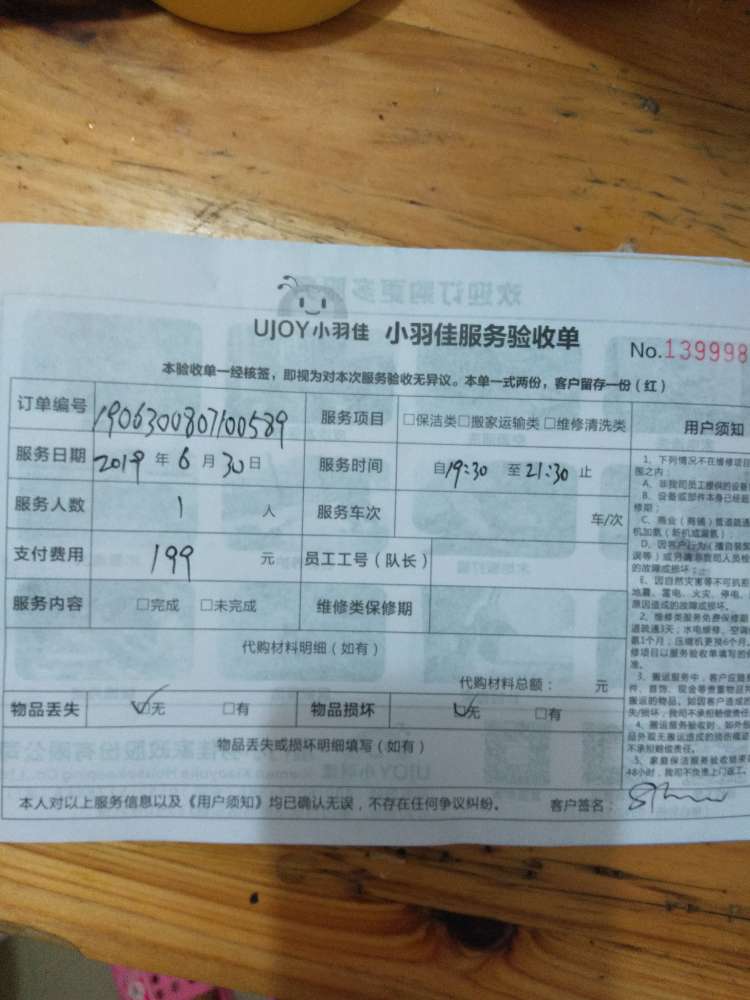 UJOY小羽佳 小羽佳服务验收单
No.139998
本验收单一经核签，即视为对本次服务验收无异议。本单一式两份，客户留存一份（红）
订单编号 1906300807100589 服务项目 □保洁类□搬家运输类□维修清洗类 用户须知
服务日期 2019 年 6 月 30 日 服务时间 自19:30 至 21:30 止
服务人数 1 人 服务车次 车/次
支付费用 199 元 员工工号（队长）
服务内容 □完成 □未完成 维修类保修期
代购材料明细（如有）
代购材料总额： 元
物品丢失 ☑无 □有 物品损坏 ☑无 □有
物品丢失或损坏明细填写（如有）
本人对以上服务信息以及《用户须知》均已确认无误，不存在任何争议纠纷。 客户签名：
1、下列情况不在维修项目
围之内：
A、非我司员工提供的设备
B、设备或部件本身已经超
修期；
C、商业（商铺）管道疏通
机加氨（新机或漏氨）；
的故障或损坏；
E、因自然灾害等不可抗拒
地震、雷电、火灾、停电、
原因造成的故障或损坏。
2、维修类服务免费保修期
道疏通3天，水电维修、空调
氨1个月，压缩机更换6个月，
修项目以服务验收单填写的
准。
3、搬运服务中，客户应随身
件、首饰、现金等贵重物品
搬运的物品。如因客户造成的
失/损坏，我司不承担赔偿责任
4、搬运服务验收时，如外包
品外观无搬运造成的损伤痕迹
不承担赔偿责任。
5、家庭保洁服务验收结束
48小时，我司不负责上门返工。